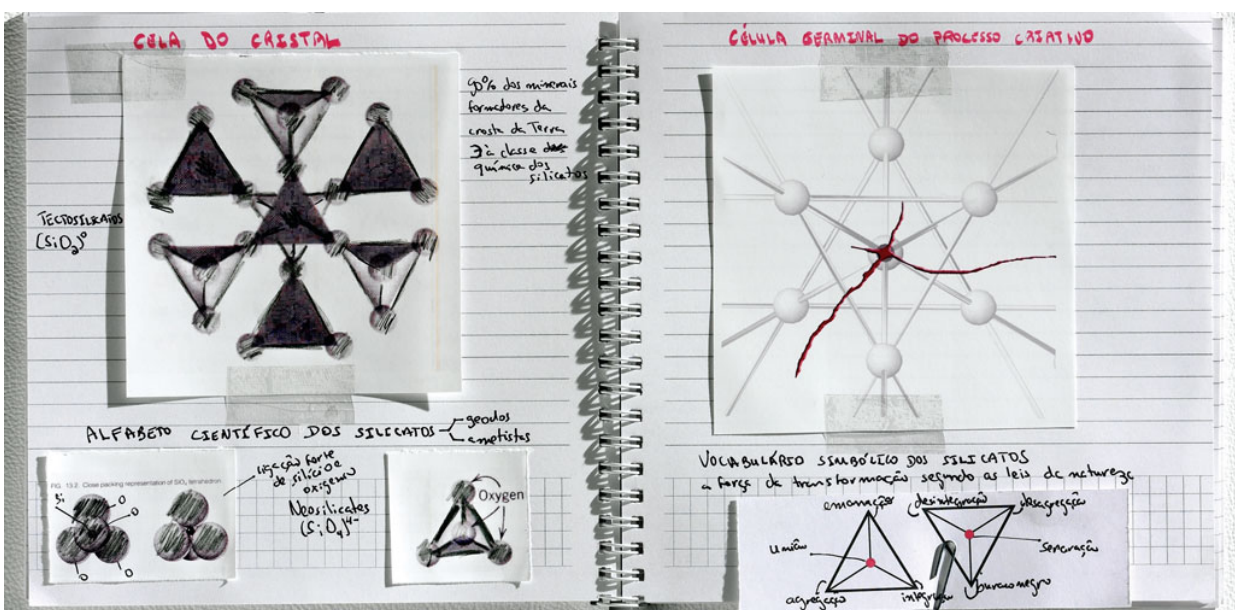 CELA DO CRISTAL
90% dos minerais
formadores da
crosta da Terra
à classe
química dos
silicatos
TECTOSILICATOS
(SiO₂)⁰
ALFABETO CIENTÍFICO DOS SILICATOS
geodos
ametistas
FIG. 13.2. Close packing representation of SiO₄ tetrahedron.
Si
O
O
O
O
ligação forte
de silício e
oxigenio
Neosilicates
(SiO₄)⁴⁻
Oxygen
CÉLULA GERMINAL DO PROCESSO CRIATIVO
VOCABULÁRIO SIMBÓLICO DOS SILICATOS
a força da transformação segundo as leis da natureza
emanação
união
agregação
integração
desintegração
desagregação
separação
buraco negro